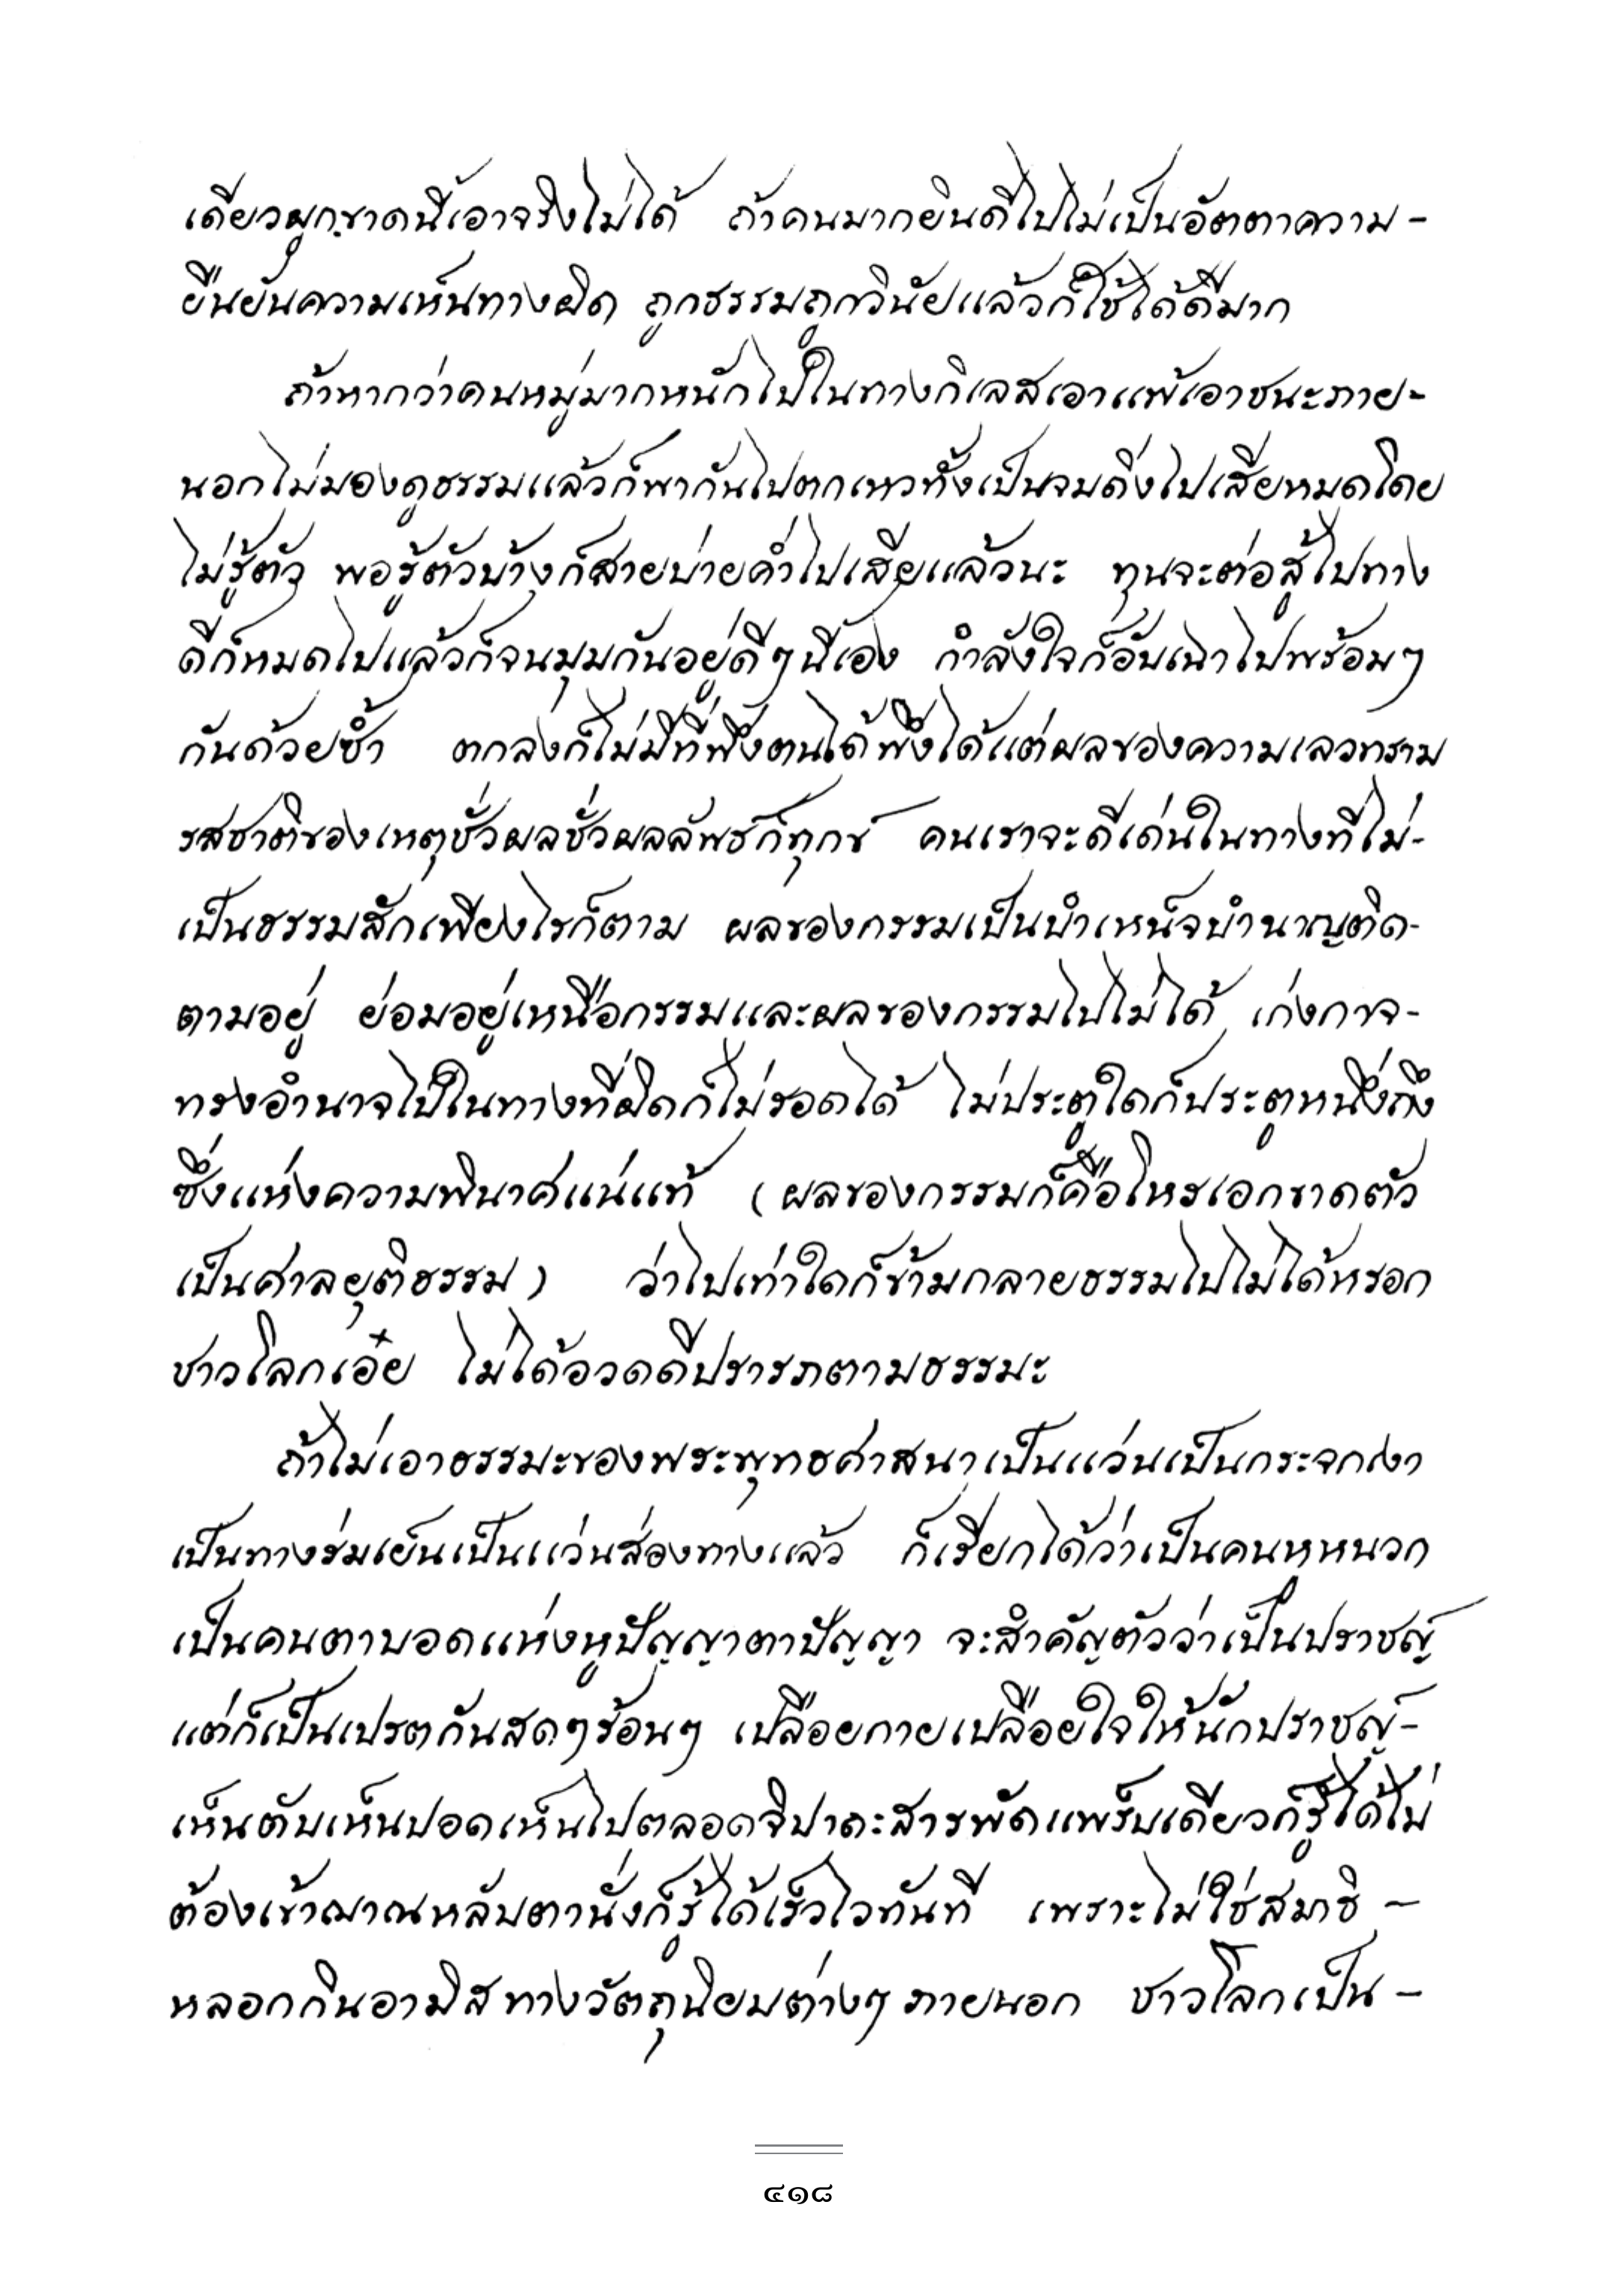 เดียวผูกขาดนี้เอาจริงไม่ได้ ถ้าคนมากยินดีไปไม่เป็นอัตตาความ-
ยืนยันความเห็นทางผิด ถูกธรรมถูกวินัยแล้วก็ใช้ได้ดีมาก
ถ้าหากว่าคนหมู่มากหนักไปในทางกิเลสเอาแพ้เอาชนะภาย-
นอกไม่มองดูธรรมแล้วก็พากันไปตกเหวทั้งเป็นจมดิ่งไปเสียหมดโดย
ไม่รู้ตัว พอรู้ตัวบ้างก็สายบ่ายค่ำไปเสียแล้วนะ ทุนจะต่อสู้ไปทาง
ดีก็หมดไปแล้วก็จนมุมกันอยู่ดีๆนี้เอง กำลังใจก็อับเฉาไปพร้อมๆ
กันด้วยซ้ำ ตกลงก็ไม่มีที่พึ่งตนได้พึ่งได้แต่ผลของความเลวทราม
รสชาติของเหตุชั่วผลชั่วผลลัพธ์ก็ทุกข์ คนเราจะดีเด่นในทางที่ไม่-
เป็นธรรมสักเพียงไรก็ตาม ผลของกรรมเป็นบำเหน็จบำนาญติด-
ตามอยู่ ย่อมอยู่เหนือกรรมและผลของกรรมไปไม่ได้ เก่งกาจ-
ทรงอำนาจไปในทางที่ผิดก็ไม่รอดได้ ไม่ประตูใดก็ประตูหนึ่งถึง
ซึ่งแห่งความพินาศแน่แท้ (ผลของกรรมก็คือโหรเอกขาดตัว
เป็นศาลยุติธรรม) ว่าไปเท่าใดก็ข้ามกลายธรรมไปไม่ได้หรอก
ชาวโลกเอ๋ย ไม่ได้อวดดีปรารภตามธรรมะ
ถ้าไม่เอาธรรมะของพระพุทธศาสนาเป็นแว่นเป็นกระจกเงา
เป็นทางร่มเย็นเป็นแว่นส่องทางแล้ว ก็เรียกได้ว่าเป็นคนหูหนวก
เป็นคนตาบอดแห่งหูปัญญาตาปัญญา จะสำคัญตัวว่าเป็นปราชญ์
แต่ก็เป็นเปรตกันสดๆร้อนๆ เปลือยกายเปลือยใจให้นักปราชญ์-
เห็นตับเห็นปอดเห็นไปตลอดจิปาถะสารพัดแพร็บเดียวก็รู้ได้ไม่
ต้องเข้าฌาณหลับตานั่งก็รู้ได้เร็วไวทันที เพราะไม่ใช่สมาธิ -
หลอกกินอามิสทางวัตถุนิยมต่างๆภายนอก ชาวโลกเป็น -
๔๑๘